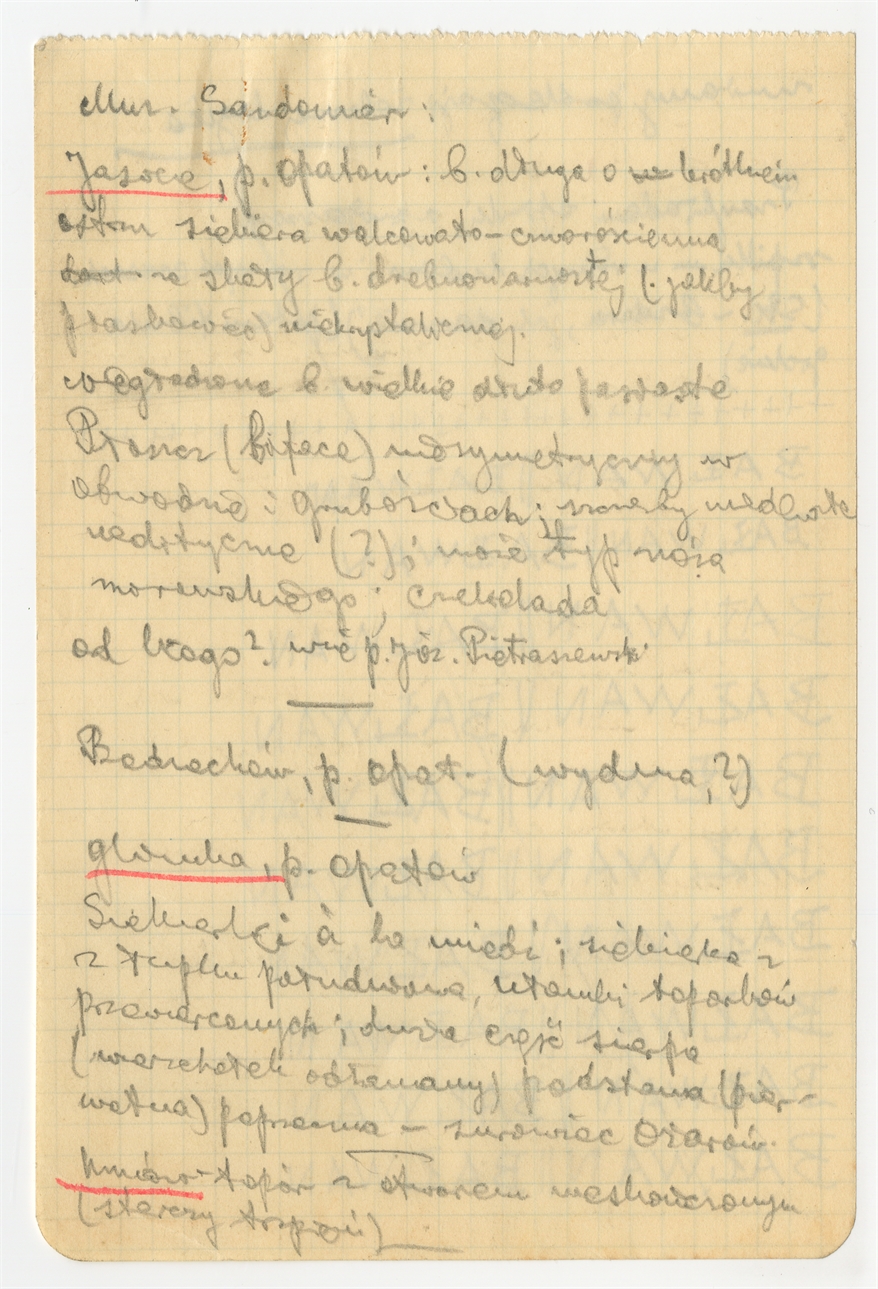 Muz. Sandomierz:
Jasice, p. Opatów: b. długa o krótkim
ostrzu siekiera walcowato-czworościenna
ze skały b. drobnoziarnistej (jakby
piaskowiec) niekrystalicznej.
wygładzone b. wielkie dłuto pasiaste
Płoszcz (biface) niesymetryczny w
obwodzie i grubościach;
(?); może typ noża
morawskiego; czekolada
od kogo? wie p. Józ. Pietraszewski
Bedrechów, p. opat. (wydma, ?)
Glinka, p. Opatów
Siekierki à la miedź; siekierka z
z tupku południowa, ułamki toporków
przewierconych; duża część sierpa
(wierzchołek odłamany) podstawa (pier-
wotna) poprzeczna – surowiec Ożarów.
topór z otworem nieskończonym
(sterczy trzpień)